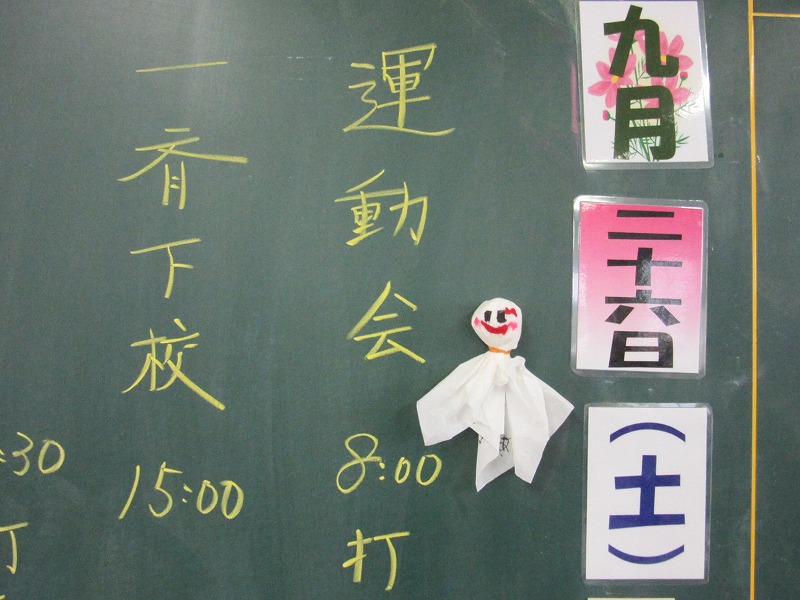 九月
二十六日
（土）
運動会
8:00
打
一斉下校
15:00
:30